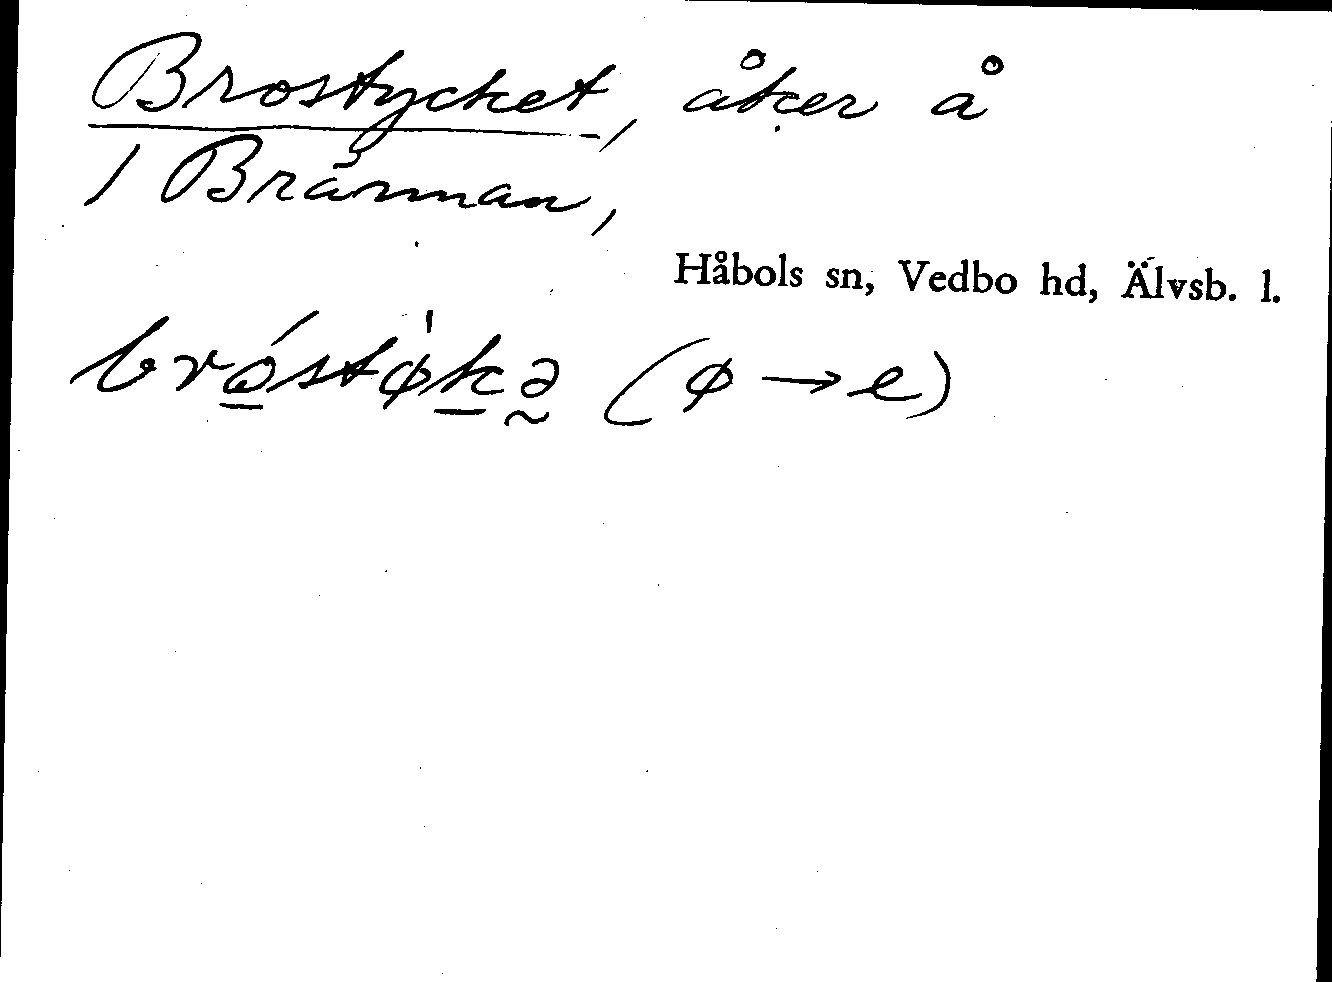 Brostycket, åker å
1 Brännan,
Håbols sn, Vedbo hd, Älvsb. l.
bróstø̍kə (ø → e)